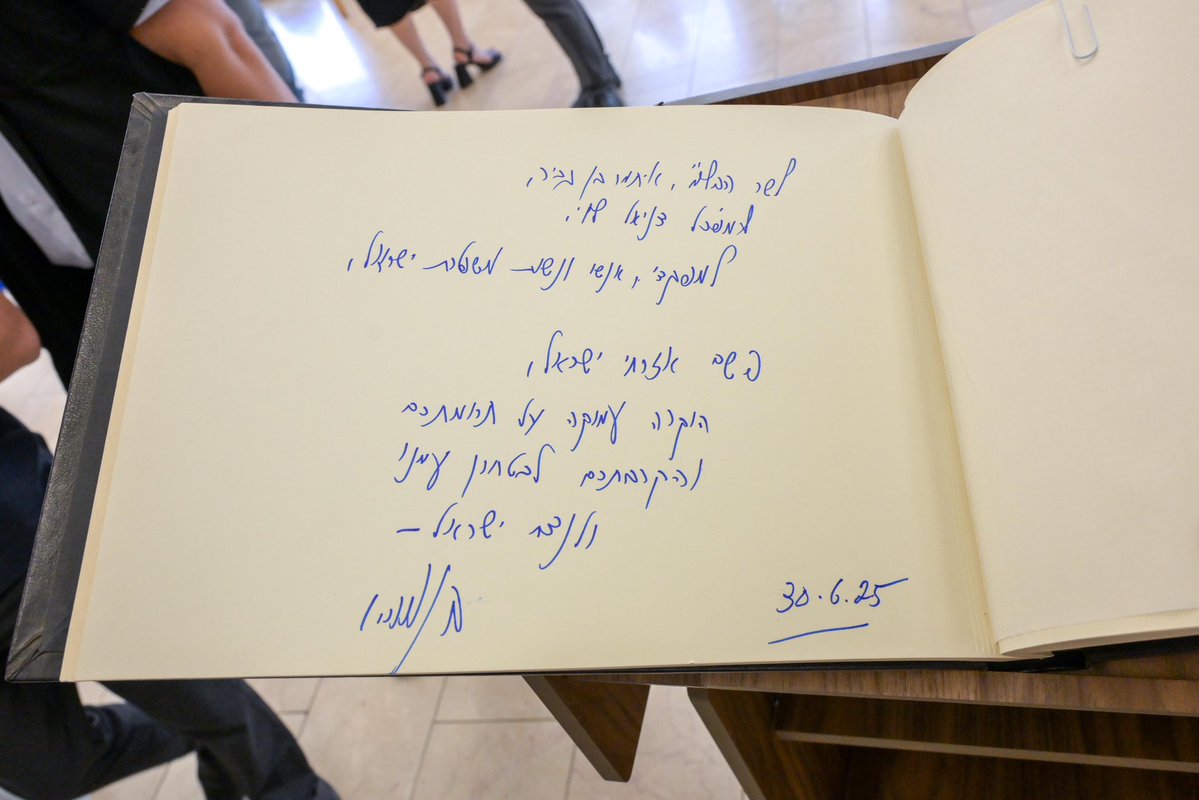 לשר הבל"מ, איתמר בן גביר,
למפכ"ל דניאל לוי,
למפקדי, אנשי ונשות משטרת ישראל,
בשם אזרחי ישראל,
הוקרה עמוקה על תרומתכם
והקרבתכם לבטחון עמנו
ולנצח ישראל –
30.6.25